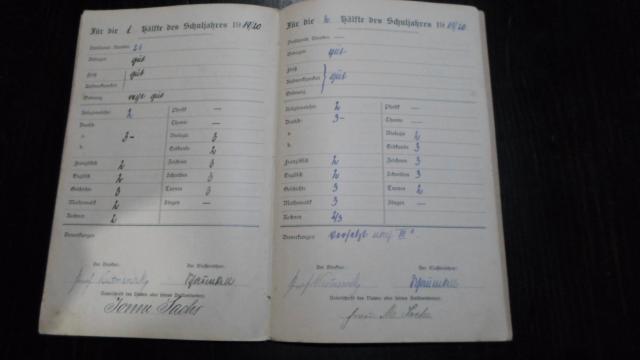 Für die 1. Hälfte des Schuljahres 1919/20
Versäumte Stunden 21
Betragen gut
Fleiß
Aufmerksamkeit gut
Ordnung sehr gut
Religionslehre 2 Physik —
Deutsch Chemie —
a. 3- Biologie 3
b. Erdkunde 2
Französisch 2 Zeichnen 3
Englisch 2 Schreiben 3
Geschichte 3 Turnen 3
Mathematik 2 Singen —
Rechnen 2
Bemerkungen
Der Direktor: Der Klassenlehrer:
Unterschrift des Vaters oder seines Stellvertreters:
Für die 2. Hälfte des Schuljahres 1919/20
Versäumte Stunden —
Betragen gut
Fleiß
Aufmerksamkeit gut
Ordnung
Religionslehre 2 Physik —
Deutsch 3- Chemie —
a. Biologie 2
b. Erdkunde 3
Französisch 2 Zeichnen 3
Englisch 2 Schreiben 3
Geschichte 3 Turnen 2
Mathematik 3 Singen —
Rechnen 2/3
Bemerkungen versetzt nach
Der Direktor: Der Klassenlehrer:
Unterschrift des Vaters oder seines Stellvertreters: